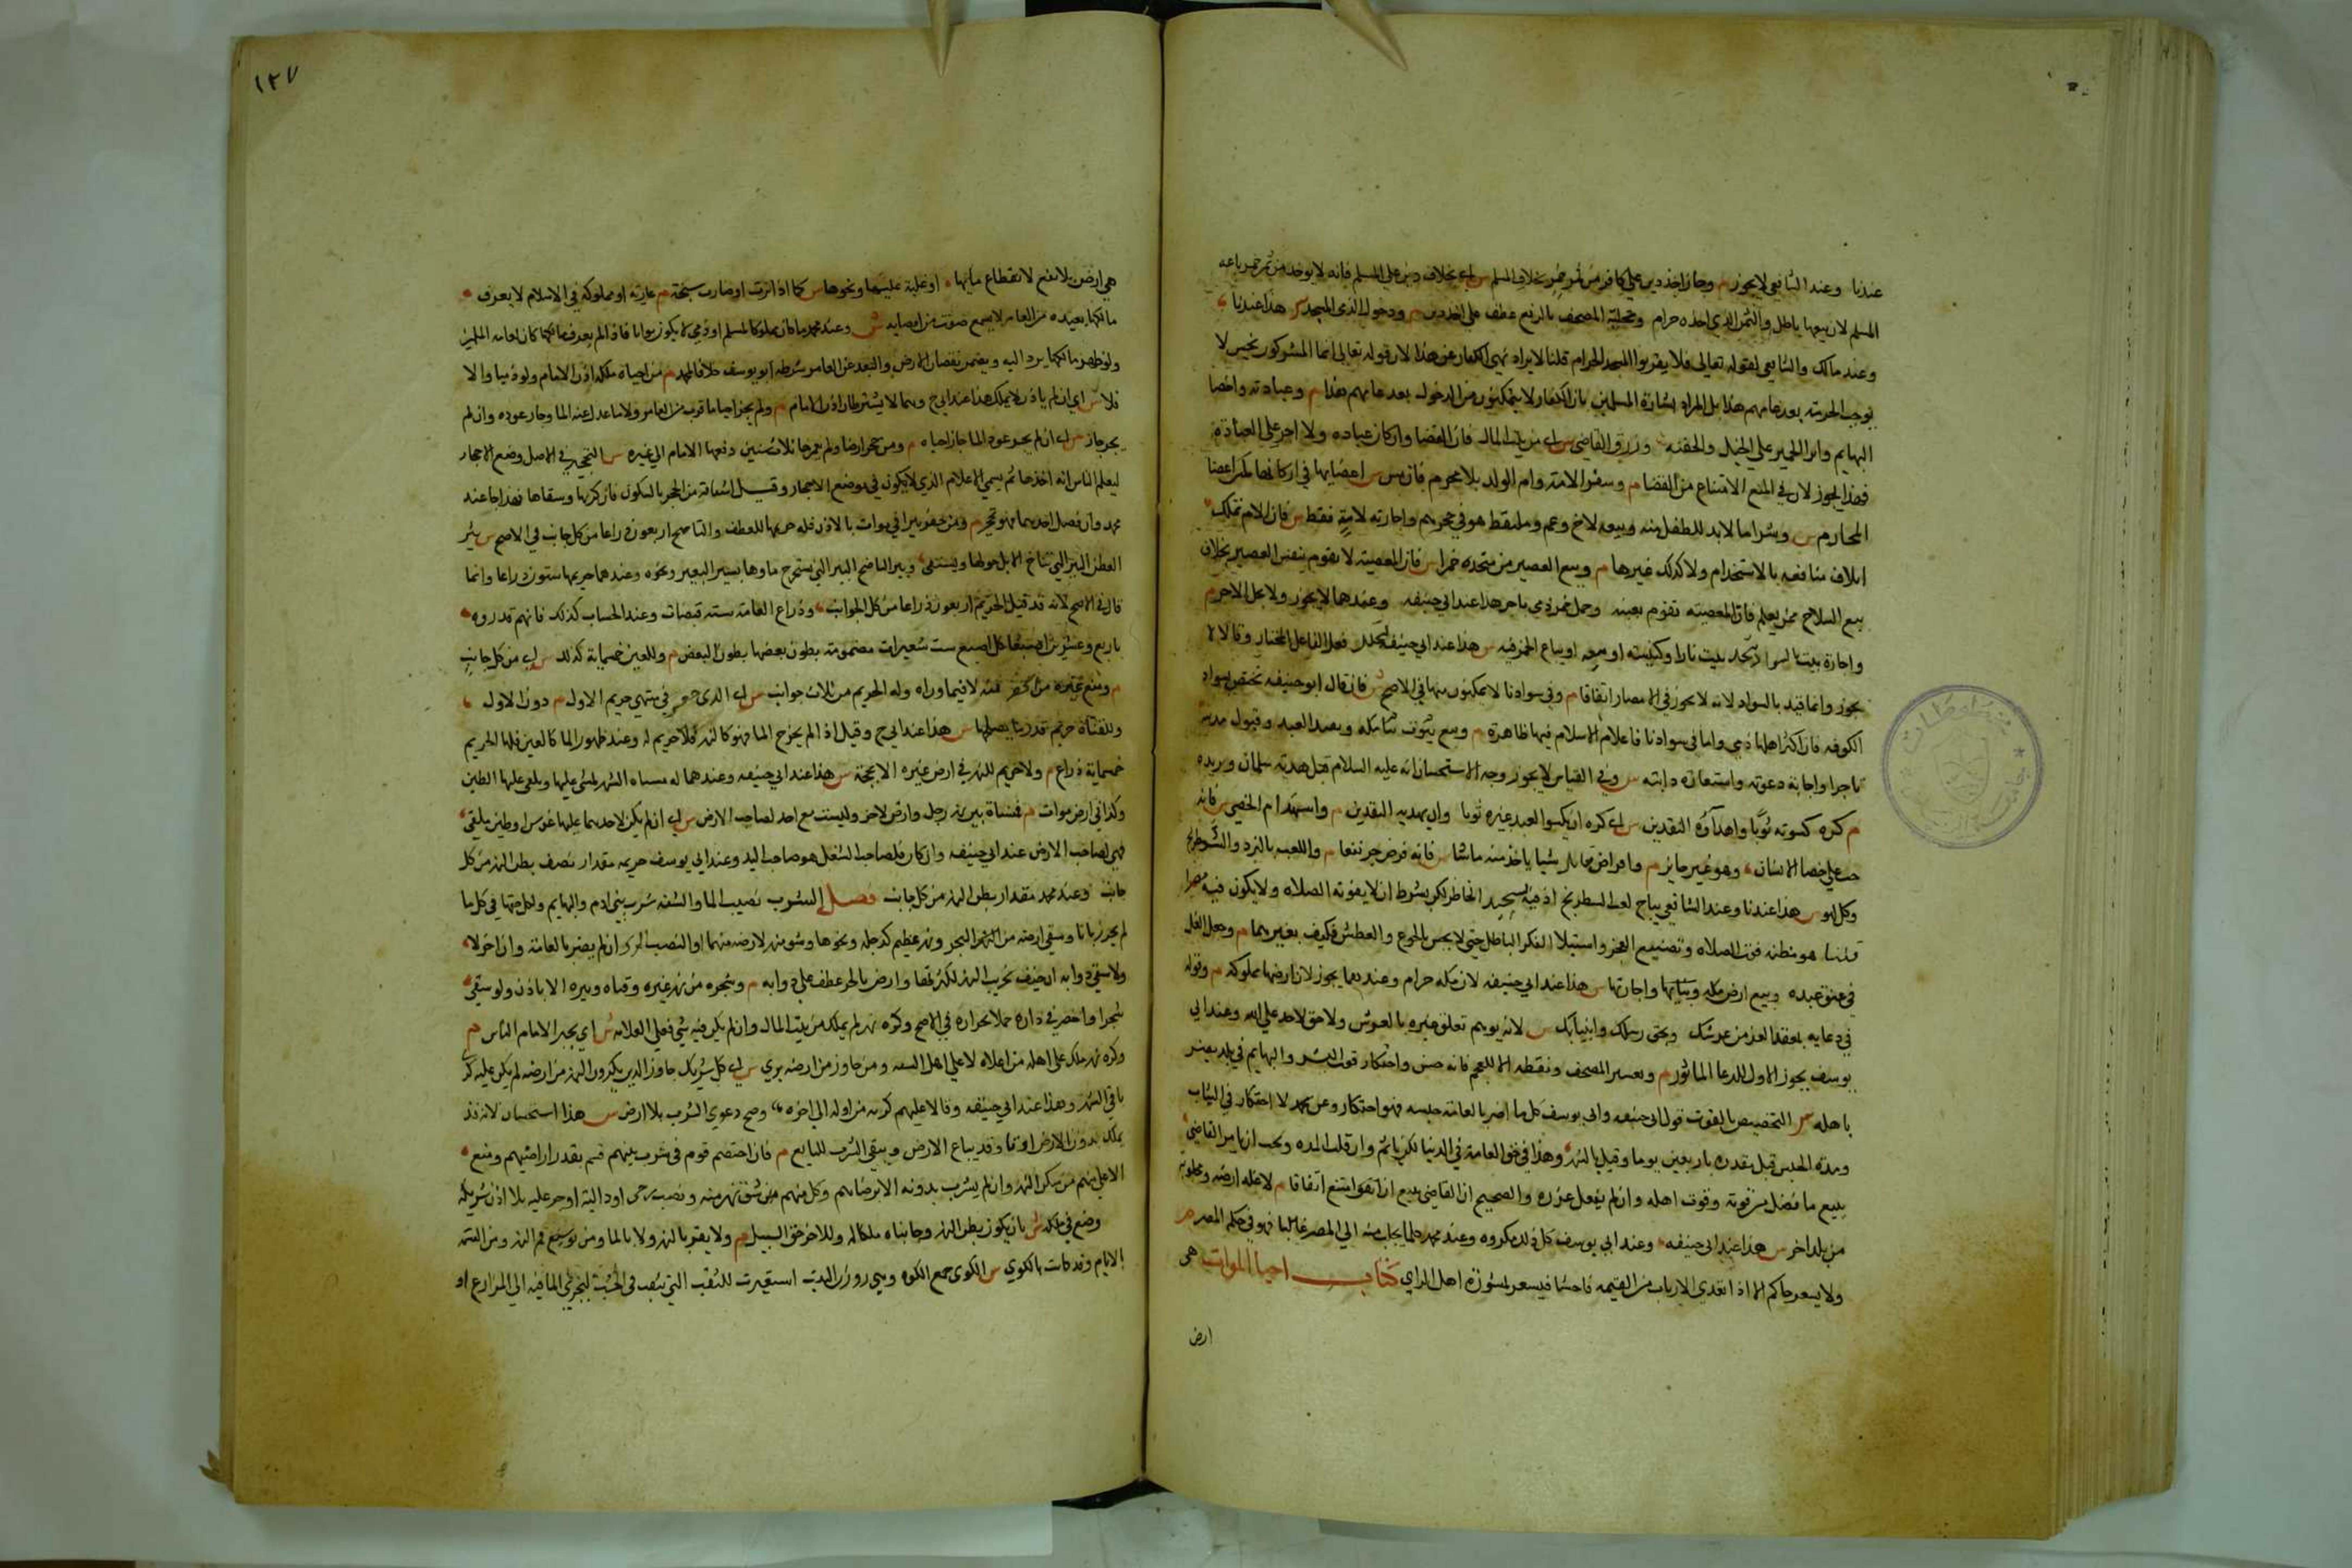 عندنا وعند الشافعي لا يجوز م وجاز اخذ دين علي كافر من ثمن خمر بخلاف المسلم س اي بخلاف دين على المسلم فانه لا يوخذ من ثمن خمر باعه
المسلم لان بيعها باطل والثمن الذي اخذه حرام وتحلية المصحف بالرفع عطف على اخذ دين م ودخول الذمي المسجد س هذا عندنا
وعند مالك والشافعي لقوله تعالى فلا يقربوا المسجد الحرام قلنا لا يراد نهي الكفار عن هذا لان قوله تعالى انما المشركون نجس لا
يوجب الحرمة بعد عامهم هذا بل المراد بشارة المسلمين بان الكفار لا يتمكنون من الدخول بعد عامهم هذا م وعيادته واخصا
البهايم وانزا الحمير علي الخيل والحقنه ورزق القاضي س اي من بيت المال فان القضا وان كان عباده ولا اجر على العبادة
فهذا يجوز لان في المنع الامتناع من القضا م وسفر الامة وام الولد بلا محرم فان مس اعضايها في اركابها كمس اعضا
المحارم س وشرا ما لابد للطفل منه وبيعه لاخ وعم وملتقط هو في حجرهم واجارته لامه فقط س فان للام تملك
اتلاف منافعه بالاستخدام ولا كذلك غيرها م وبيع العصير من متخذه خمرا س فان المعصية لا تقوم بنفس العصير بخلاف
بيع السلاح ممن يعلم فان المعصية تقوم بعينه وحمل خمر ذمي باجر هذا عند ابي حنيفه وعندهما لا يجوز ولا يحل الاجر م
واجارة بيت بالسواد ليتخذ بيت نار او كنيسة او بيعه او يباع الخمر فيه س هذا عند ابي حنيفه لتخلل فعل الفاعل المختار وقالا لا
يجوز وانما قيد بالسواد لانه لا يجوز في الامصار اتفاقا م وفي سوادنا لا يمكنون منها في الاصح س فان قال ابو حنيفه تختص بسواد
الكوفه فان اكثر اهلها ذمي واما في سوادنا فاعلام الاسلام فيها ظاهرة م وبيع
تاجرا واجابة دعوته واستعارة دابته س وفي القياس لا يجوز وجه الاستحسان انه عليه السلام قبل هدية سلمان وبريره
م كره كسوته ثوبا واهداؤه النقدين س اي كره ان يكسو العبد غيره ثوبا وان يهديه النقدين م واستخدام الخصي س فانه
حث علي خصا الانسان وهو غير جايز م واقراض بقال شيا ياخذ منه ما شا س فانه قرض جر نفعا م واللعب بالنرد والشطرنج
وكل لهو س هذا عندنا وعند الشافعي يباح لعب الشطرنج اذ فيه تشحيذ الخاطر لكن بشرط ان لا يفوته الصلاه ولا يكون فيه ميسر
قلنا هو مظنه فوت الصلاه وتضييع العمر واستيلا الفكر الباطل حتي لا يحس بالجوع والعطش فكيف بغيرهما م وجعل الغل
في عنق عبده وبيع ارض مكه وبنائها واجارتها س هذا عند ابي حنيفه لان مكه حرام وعندهما يجوز لان ارضها مملوكه م وقوله
في دعايه بمعقد العز من عرشك وبحق رسلك وانبيائك س لانه يوهم تعلق عزه بالعرش ولا حق لاحد علي الله وعند ابي
يوسف يجوز الاول للدعا الماثور م وتعشير المصحف ونقطه الا للعجم فانه حسن واحتكار قوت البشر والبهايم في بلد يضر
باهله س التخصيص بالقوت قول ابي حنيفه وابي يوسف كل ما اضر بالعامه حبسه فهو احتكار وعن محمد لا احتكار في الثياب
ومدة الحبس قيل مقدره باربعين يوما وقيل بالشهر وهذا في حق العامة في الدنيا لكن ياثم وان قلت المده ويجب ان يامر القاضي
ببيع ما فضل من قوته وقوت اهله وان لم يفعل عزره والصحيح ان القاضي يبيع ان امتنع اتفاقا م لا غله ارضه ومجلوبه
من بلد اخر س هذا عند ابي حنيفه وعند ابي يوسف كل ذلك مكروه وعند محمد كلما يجلب منه الي المصر غالبا فهو في حكم المصر م
ولا يسعر حاكم الا اذا تعدي الارباب من القيمه فاحشا فيسعر بمشورة اهل الراي كتاب احيا الموات هي
ارض
١٢٧
هي ارض بلا نفع لانقطاع مائها او غلبة عليها ونحوها س كما اذا نزت او صارت سبخة م عادية او مملوكه في الاسلام لا يعرف
مالكها بعيده من العامر لا يسمع صوت من اقصاه س وعند محمد ما كان مملوكا لمسلم او ذمي لا يكون مواتا فاذا لم يعرف مالكها كان لعامة المسلمين
ولو ظهر مالكها يرد اليه ويضمن نقصان الارض والبعد عن العامر شرطه ابو يوسف خلافا لمحمد م من احياه ملكه اذن الامام ولو ذميا والا
فلا س اي ان لم ياذن لا يملك هذا عند ابي ح وهما لا يشترطان اذن الامام م ولم يجز احيا ما قرب من العامر ولا ما عدل عنه الما وجاز عوده وان لم
يجز جاز س اي ان لم يجز عود الما جاز احياه م ومن حجر ارضا ولم يعمرها ثلاث سنين دفعها الامام الي غيره س التحجير في الاصل وضع الاحجار
ليعلم الناس انه اخذها ثم سمي الاعلام الذي لا يكون في موضع الاحجار وقيل اشتقاقه من الحجر بالسكون فان كربها وسقاها فهذا احيا عند
محمد وان فصل احدهما فهو تحجير م ومن حفر بيرا في موات بالاذن فله حريمها للعطن والناضح اربعون ذراعا من كل جانب في الاصح س بئر
العطن البير التي تناخ الابل حولها ويستقى وبير الناضح البير التي يستخرج ماوها بسير البعير ونحوه وعندهما حريمها ستون ذراعا وانما
قال في الاصح لانه قد قيل الحريم اربعون ذراعا من كل الجوانب وذراع العامة ستة قبضات وعند الحساب كذلك فانهم قدروه
باربع وعشرين اصبعا كل اصبع ست شعيرات مضمومة بطون بعضها بطون البعض م وللعين خمسماية كذلك س اي من كل جانب
م ومنع غيره من الحفر فيه لا فيما وراه وله الحريم من ثلاث جوانب س اي الذي حفر في منتهى حريم الاول م دون الاول
وللقناة حريم بقدر ما يصلحها س هذا عند ابي ح وقيل اذا لم يخرج الما فهو كالنهر فلا حريم له وعند ظهور الما كالعين فلها الحريم
خمسماية ذراع م ولا حريم للنهر في ارض غيره الا بحجة س هذا عند ابي حنيفه وعندهما له مسناه النهر لمشي عليها ويلقي عليها الطين
وكذا في ارض موات م فمسناة بين نهر رجل وارض لاخر وليست مع احد لصاحب الارض س اي ان لم يكن لاحدهما عليها غرس او طين ملقى
فهي لصاحب الارض عند ابي حنيفه وان كان فلصاحب الشغل هو صاحب اليد وعند ابي يوسف حريمه مقدار نصف بطن النهر من كل
جانب وعند محمد مقدار بطن النهر من كل جانب فصل الشرب نصيب الما والشفه شرب بني ادم والبهايم ولكل حقها في كل ما
لم يحرز بانا وسقي ارضه من البحر ونهر عظيم كدجله ونحوها وشق نهر لارضه منها او لنصب الرحي ان لم يضر بالعامة وان اخر لا
ولا سقي دوابه ان خيف تخريب النهر لكثرتها وارض بالجر عطف علي دوابه م وشجره من نهر غيره وقناه وبيره الا باذن ولو سقى
شجرا واخضر في داره حملا بجراره في الاصح وكري نهر لم يملك من بيت المال وان لم يكن فيه شي فعلي العامه س اي يجبر الامام الناس م
وكري نهر ملك على اهله من اعلاه لا علي اهل الشفه ومن جاوز من ارضه بري س اي كل شريك جاوز الذين يكرون النهر من ارضه لم يكن عليه كري
باقي النهر وهذا عند ابي حنيفه وقالا عليهم كريه من اوله الي اخره وصح دعوي الشرب بلا ارض س هذا استحسان لانه قد
يملك بدون الارض ارثا وقد يباع الارض ويبقي الشرب للبايع م فان اختصم قوم في شرب بينهم قسم بقدر اراضيهم ومنع
الاعلي منهم من سكر النهر وان لم يشرب بدونه الا برضاهم وكل منهم من شق نهر منه ونصب رحى او دالية او جسر عليه بلا اذن شريكه
وضع في ملكه س بان يكون بطن النهر وجانباه ملكا له وللاخر حق السيل م ولا يضر بالنهر ولا بالما ومن توسيع فم النهر ومن القسمة
بالايام وقد كانت بالكوي س الكوي جمع الكوه وهي روزن البيت استعيرت للثقب التي يثقب في الخشب ليجري الما فيه الي المزارع او